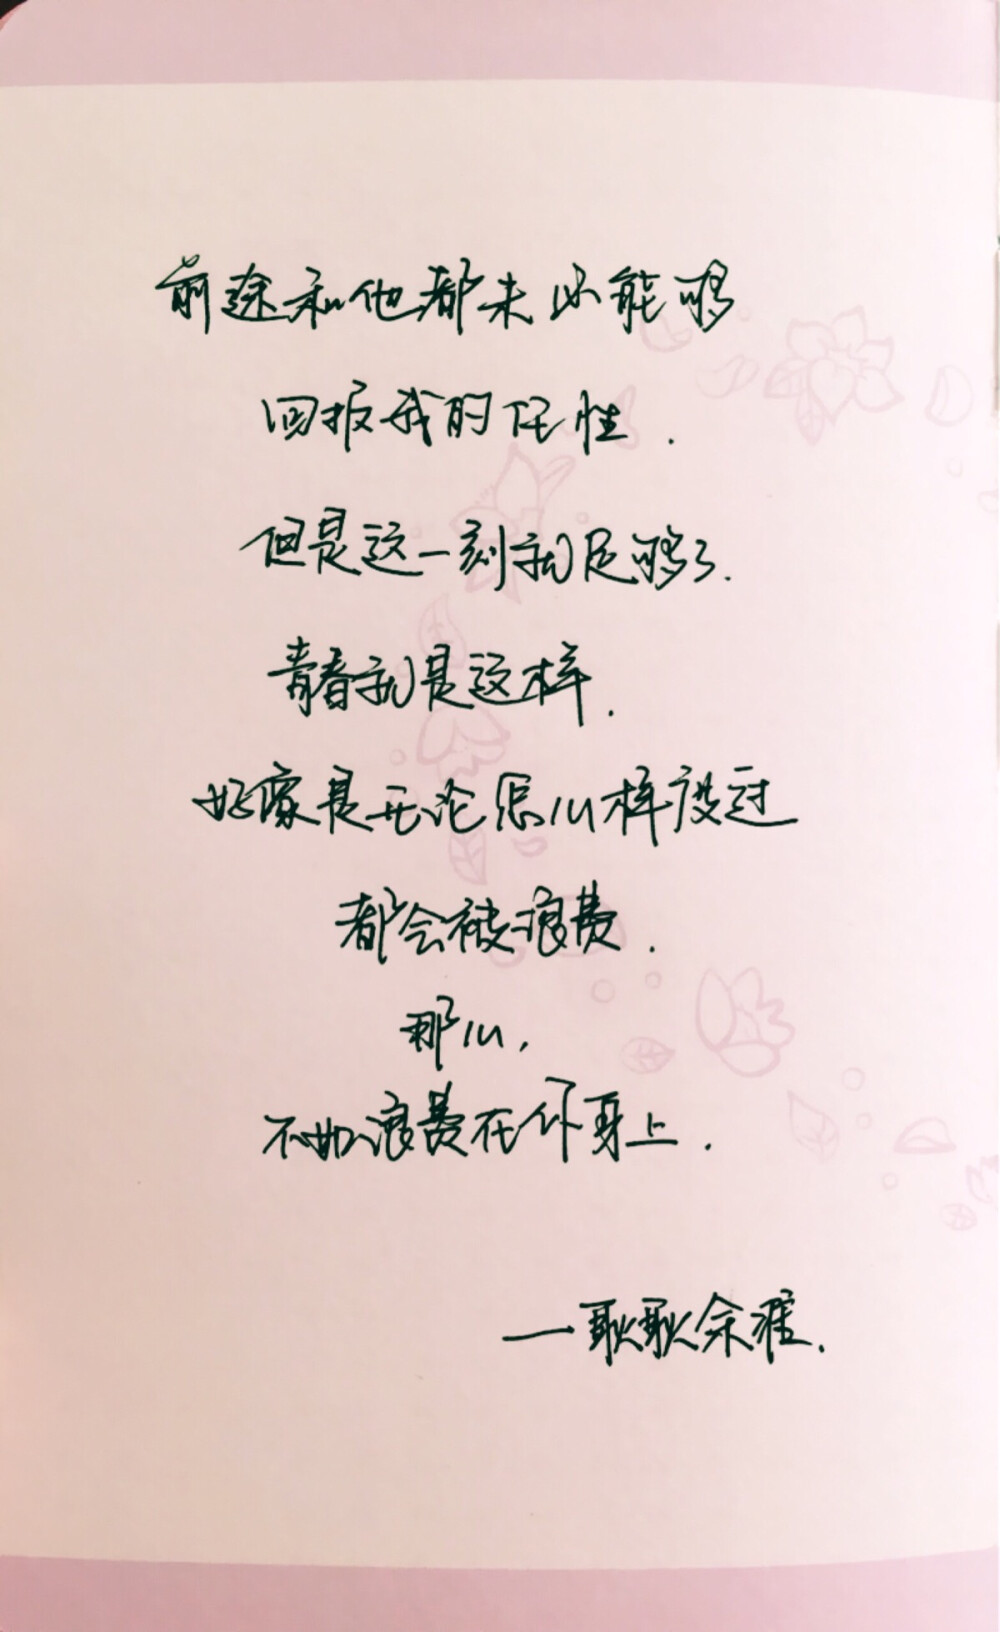 前途和他都未必能够
回报我的任性.
但是这一刻就足够了.
青春就是这样.
好像是无论怎么样度过
都会被浪费.
那么,
不如浪费在你身上.
—耿耿余淮.